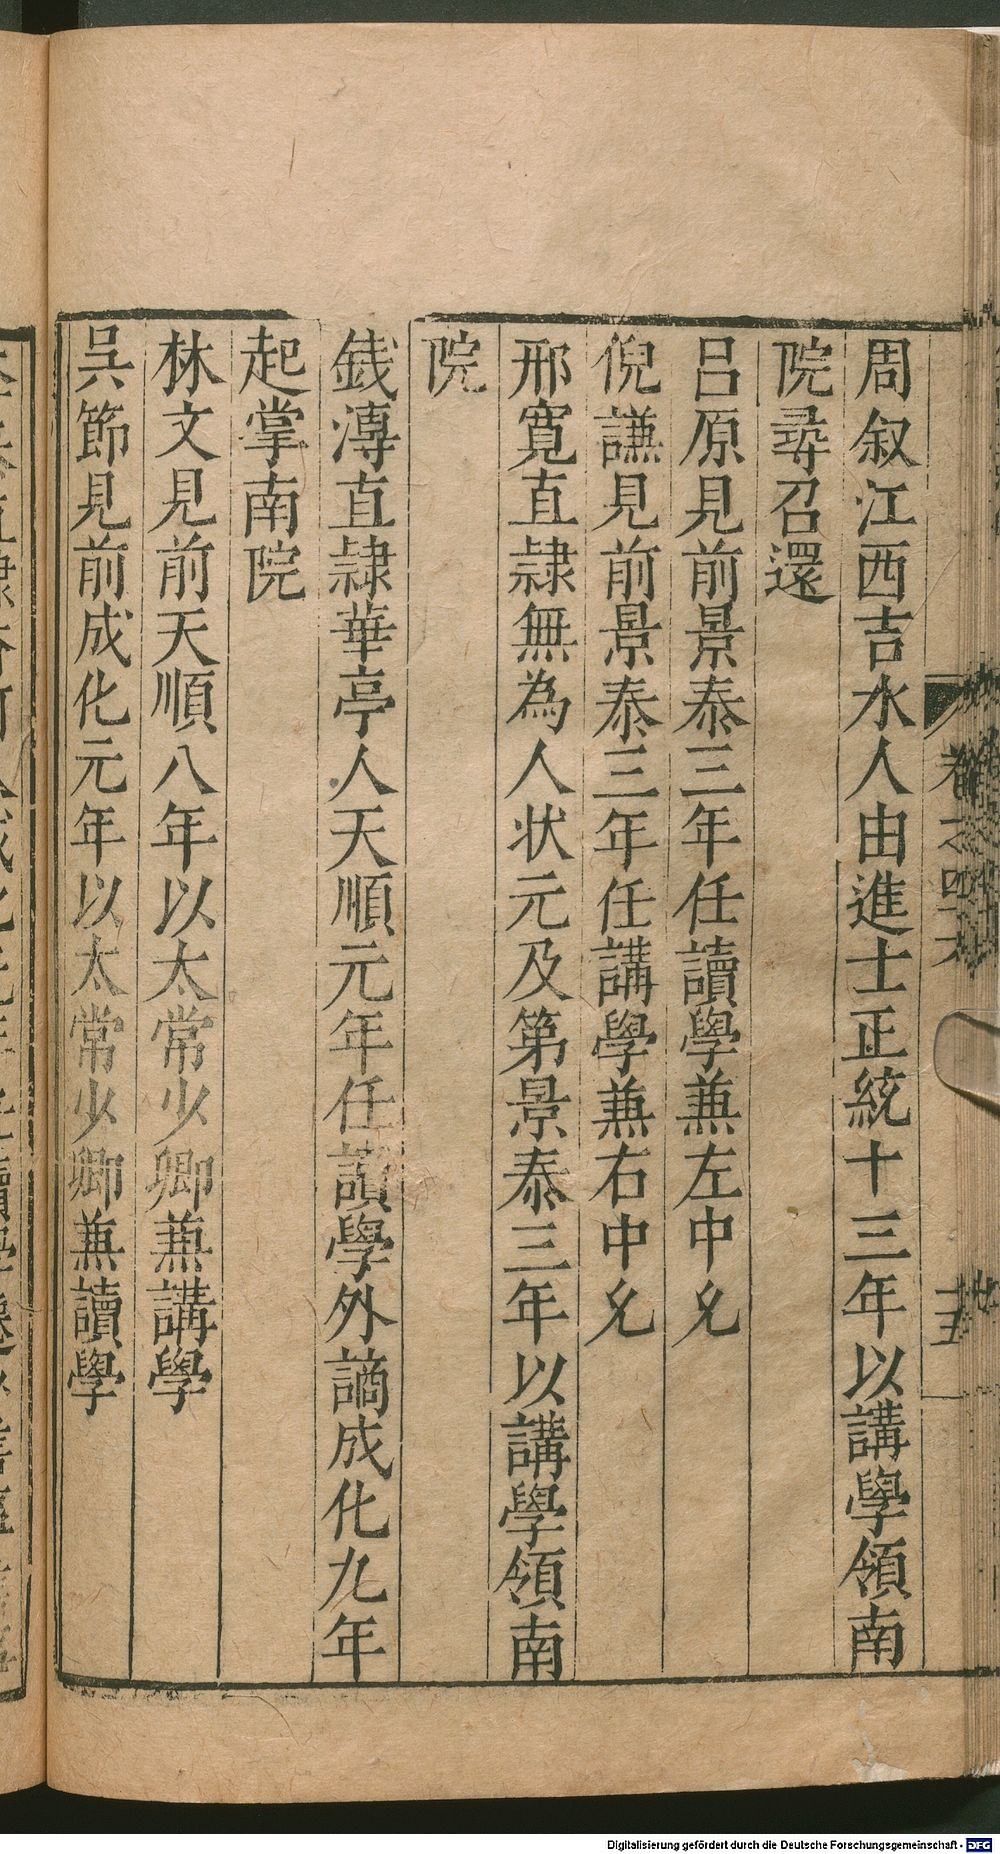 周叙江西吉水人由進士正統十三年以講學領南
院尋召還
吕原見前景泰三年任讀學兼左中允
倪謙見前景泰三年任講學兼右中允
邢寬直隷無為人状元及第景泰三年以講學領南
院
錢溥直隷華亭人天順元年任讀學外謫成化九年
起掌南院
林文見前天順八年以太常少卿兼講學
吳節見前成化元年以太常少卿兼讀學
Digitalisierung gefördert durch die Deutsche Forschungsgemeinschaft - DFG